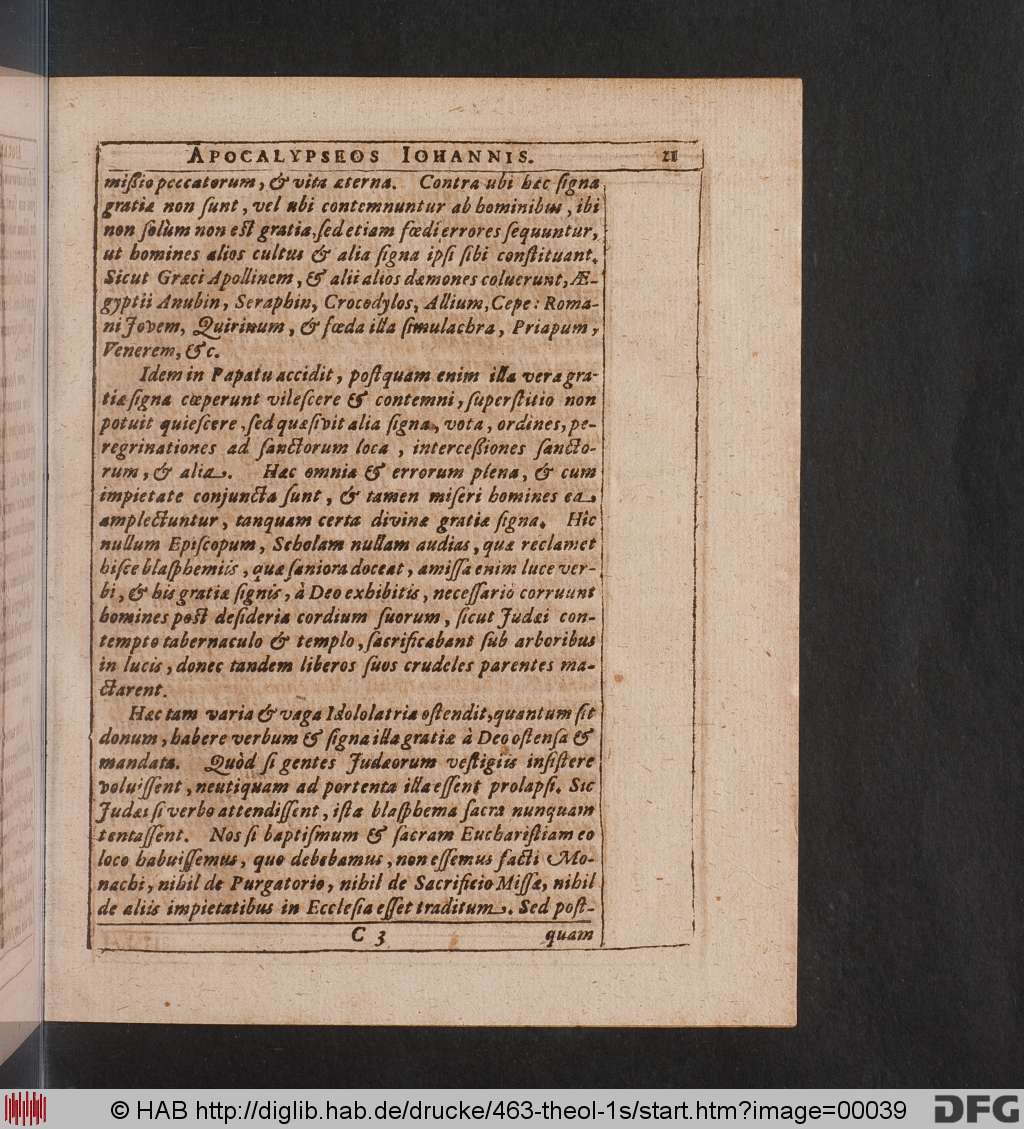 APOCALYPSEOS IOHANNIS. 21
missio peccatorum, & vita æterna. Contra ubi hæc signa
gratiæ non sunt, vel ubi contemnuntur ab hominibus, ibi
non solùm non est gratia, sed etiam fœdi errores sequuntur,
ut homines alios cultus & alia signa ipsi sibi constituant.
Sicut Græci Apollinem, & alii alios dæmones coluerunt, Æ-
gyptii Anubin, Seraphin, Crocodylos, Allium, Cepe: Roma-
ni Jovem, Quirinum, & fœda illa simulachra, Priapum,
Venerem, &c.
Idem in Papatu accidit, postquam enim illa vera gra-
tiæ signa cœperunt vilescere & contemni, superstitio non
potuit quiescere, sed quæsivit alia signa, vota, ordines, pe-
regrinationes ad sanctorum loca, intercessiones sancto-
rum, & alia. Hæc omnia & errorum plena, & cum
impietate conjuncta sunt, & tamen miseri homines ea
amplectuntur, tanquam certa divinæ gratiæ signa. Hîc
nullum Episcopum, Scholam nullam audias, quæ reclamet
hisce blasphemiis, quæ saniora doceat, amissa enim luce ver-
bi, & his gratiæ signis, à Deo exhibitis, necessariò corruunt
homines post desideria cordium suorum, sicut Judæi con-
tempto tabernaculo & templo, sacrificabant sub arboribus
in lucis, donec tandem liberos suos crudeles parentes ma-
ctarent.
Hæc tam varia & vaga Idololatria ostendit, quantum sit
donum, habere verbum & signa illa gratiæ à Deo ostensa &
mandata. Quòd si gentes Judæorum vestigiis insistere
voluissent, neutiquam ad portenta illa essent prolapsi. Sic
Judæi si verbo attendissent, ista blasphema sacra nunquam
tentassent. Nos si baptismum & sacram Eucharistiam eo
loco habuissemus, quo debebamus, non essemus facti Mo-
nachi, nihil de Purgatorio, nihil de Sacrificio Missæ, nihil
de aliis impietatibus in Ecclesia esset traditum. Sed post-
C 3 quam
© HAB http://diglib.hab.de/drucke/463-theol-1s/start.htm?image=00039 DFG